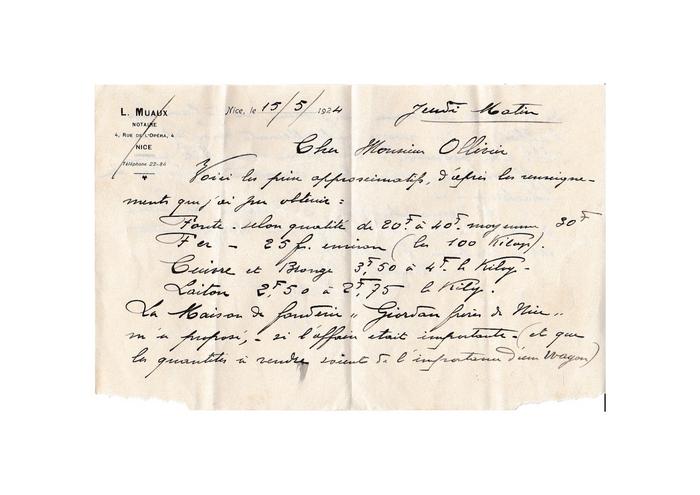 L. MUAUX
NOTAIRE
4, RUE DE L'OPÉRA, 4
NICE
Téléphone 22-84
Nice, le 15/5/1924
Jeudi Matin
Cher Monsieur Ollivier
Voici les prix approximatifs, d'après les renseigne-
ments que j'ai pu obtenir :
Fonte - selon qualité de 20F. à 40F. moyenne 30F
Fer - 25 fr. environ (les 100 Kilogs).
Cuivre et Bronze 3F,50 à 4F. le Kilog-
Laiton 2F,50 à 2F,75 le Kilog.
La Maison de fonderie "Giordan frères de Nice"
m'a proposé, - si l'affaire etait importante - (et que
les quantités à vendre soient de l'importance d'un Wagon)